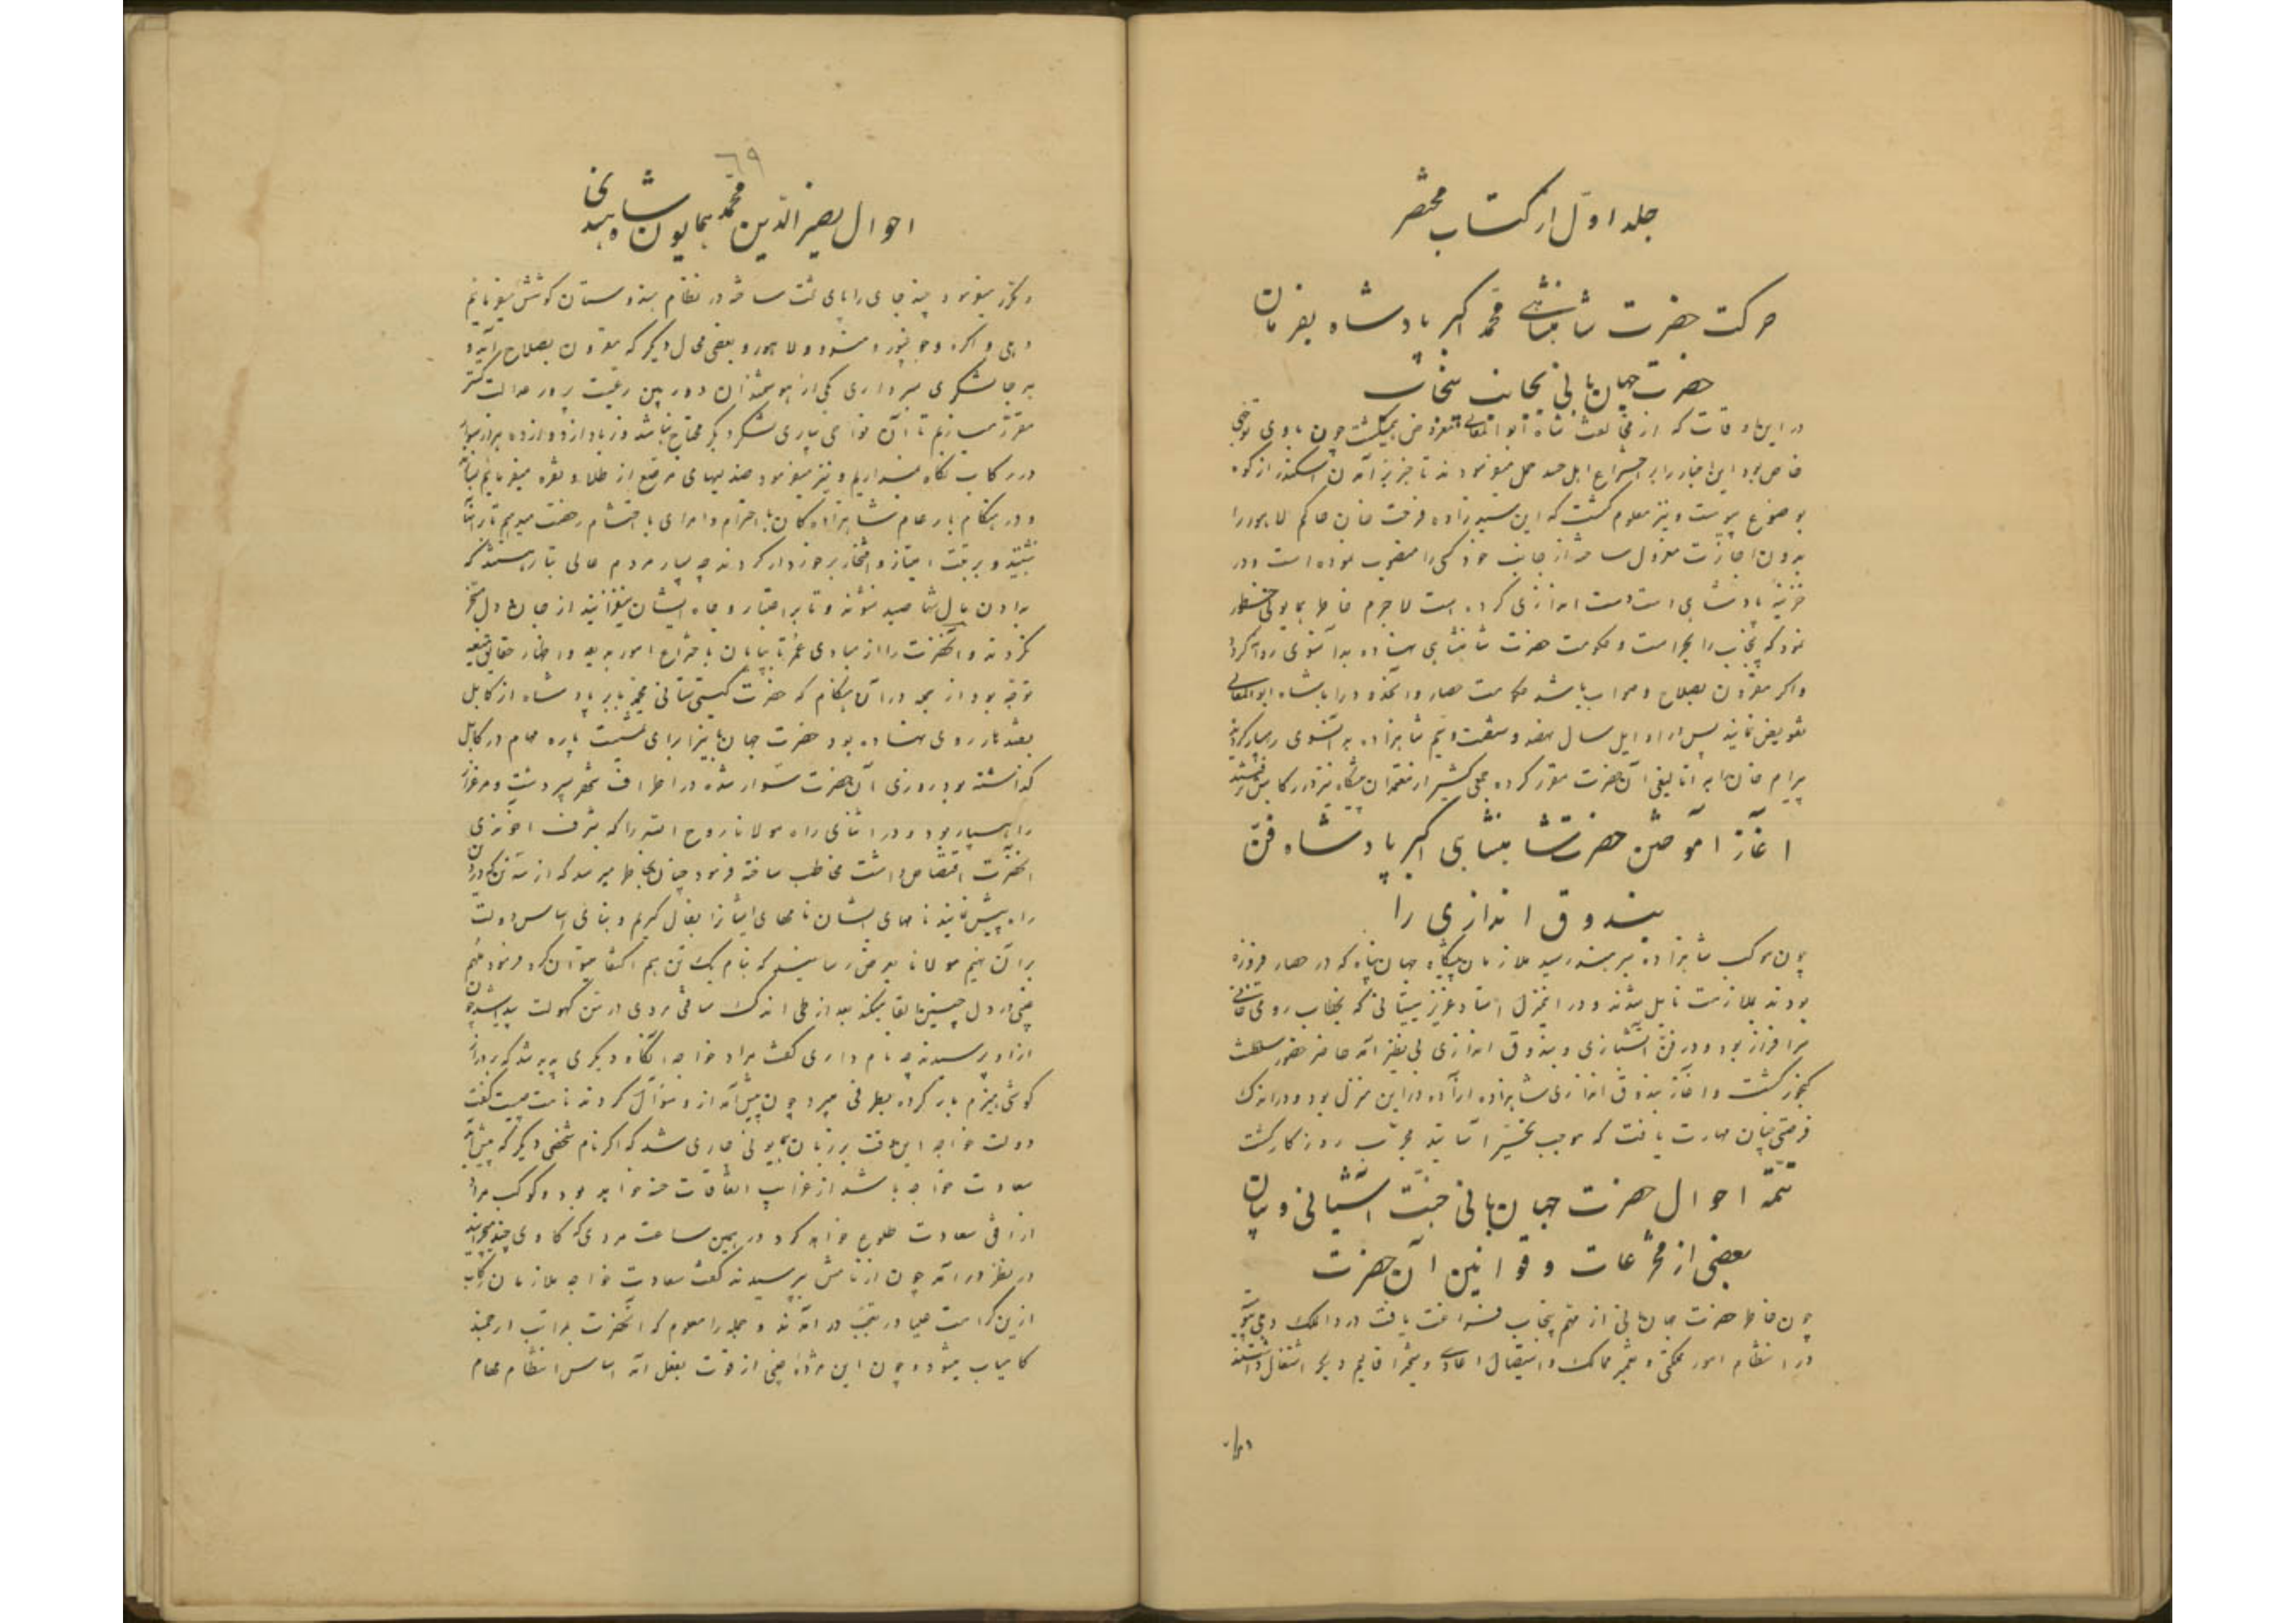 جلد اول از کتاب مختصر
حرکت حضرت شاهنشاهی محمد اکبر پادشاه بفرمان
حضرت جهان بانی بجانب پنجاب
در این اوقات که از مخالفت شاه ابوالمعالی چون با وی توجهی
خاص بود این اخبار را بر اختراع اهل حسد حمل میفرمودند تا خبر بر آمدن اسکندر از کوه
بوضوع پیوست و نیز معلوم گشت که این سید زاده فرحت خان حاکم لاهور را
بدون اجازت معزول ساخته از جانب خود کسی را منصوب نموده است و در
خزینهٔ پادشاهی است دست اندازی کرده است لاجرم خاطر همایونی
نمود که پنجاب را بحراست و حکومت حضرت شاهنشاهی بدانسوی روانه کرد
و اگر مقرون بصلاح و صواب باشد حکومت حصار و انحدود را با شاه ابوالمعالی
تفویض نمایند پس در اوایل سال نهصد و شصت و سیم شاهزاده به آنسوی رهسپار کردند
بیرام خان را به اتالیقی آن حضرت مقرر کرده جمعی کثیر از معتمدان پیشگاه نیز در رکابش
آغاز آموختن حضرت شاهنشاهی اکبر پادشاه فن
بندوق اندازی را
چون موکب شاهزاده بسرهند رسید ملازمان پیشگاه جهان پناه که در حصار فیروزه
بودند بملازمت نایل شدند و در اینمنزل استاد عزیز سیستانی که بخطاب رومی خانی
سرافراز بود و در فن آتشبازی و بندوق اندازی بی نظیر آمد حاضر حضور سلطنت
گنجور گشت و آغاز بندوق اندازی شاهزاده آزاده در این منزل بود و در اندک
فرصتی چنان مهارت یافت که موجب تحیر اساتید مجرب روزگار گشت
تتمه احوال حضرت جهان بانی جنت آشیانی و بیان
بعضی از مخترعات و قوانین آن حضرت
چون خاطر حضرت جهانبانی از مهم پنجاب فراغت یافت در دار الملک دهلی
در انتظام امور مملکتی و تعمیر ممالک و استیصال اعادی و تسخیر اقالیم دیگر اشتغال داشتند
٦٩
احوال نصیر الدین محمد همایون شاه هندی
و مکرر میفرمود چند جای را پای تخت ساخته در نظام هندوستان کوشش میفرمائیم
دهلی و اگره و جونپور و مندو و لاهور و بعضی محال دیگر که مقرون بصلاح آید و
بهر جا لشکری بسرداری یکی از هوشمندان دوربین رعیت پرور عدالت گستر
مقرر میسازیم تا آن نواحی بیاری لشکر دیگر محتاج نباشد و زیاد از دوازده هزار سوار
در رکاب نگاه نمیداریم و نیز میفرمود صندلیهای مرصع از طلا و نقره میفرمائیم بسازند
و در هنگام بار عام شاهزادگان با احترام و امرای با احتشام رخصت میدهیم تا بر آنها
نشینند و بر رتبت امتیاز و افتخار برخوردار کردند چه بسیار مردم عالی تبار هستند که
بدادن مال شما صید نشوند و تا بر اعتبار و جاه ایشان نیفزائید از جان و دل مسخر
نگردند و آنحضرت را از مبادی عمر تا بپایان باختراع امور بدیعه و اظهار حقایق
توجه بود از جمله در آن هنگام که حضرت گیتی ستانی محمد بابر پادشاه از کابل
بقندهار روی نهاده بود حضرت جهان بانی را برای تمشیت پاره مهام در کابل
گذاشته بود روزی آن حضرت سوار شده در اطراف شهر بسیر دشت و مرغزار
راه سپار بود و در اثنای راه مولانا روح الله را که بشرف اخوندی
آنحضرت اختصاص داشت مخاطب ساخته فرمود چنان بخاطر میرسد که از سه تن که در این
راه پیش نمایند نامهای ایشان را بفال گیریم و بنای اساس دولت
بر آن نهیم مولانا بعرض رسانید که بنام یک تن هم اکتفا میتوان کرد فرمود ملهم
غیبی در دل چنین القا میکند بعد از طی اندک مسافتی مردی در سن کهولت پدید شد چون
از او پرسیدند چه نام داری گفت مراد خواجه آنگاه دیگری پدید شد که بر دراز
گوشی هیزم بار کرده بطرفی میبرد چون پیش آمد از وی سؤال کردند نامت چیست گفت
دولت خواجه این وقت بر زبان همایونی جاری شد که اگر نام شخص دیگر که پیش آید
سعادت خواجه باشد از غرایب اتفاقات حسنه خواهد بود و کوکب مراد
از افق سعادت طلوع خواهد کرد در همین ساعت مردی که گاوی چند میچرانید
در نظر در آمد چون از نامش پرسیدند گفت سعادت خواجه ملازمان رکاب
از این کرامت علیا در تعجب در آمدند و جمله را معلوم که آنحضرت بمراتب ارجمند
کامیاب میشود و چون این مژده غیبی از قوت بفعل آمد اساس انتظام مهام